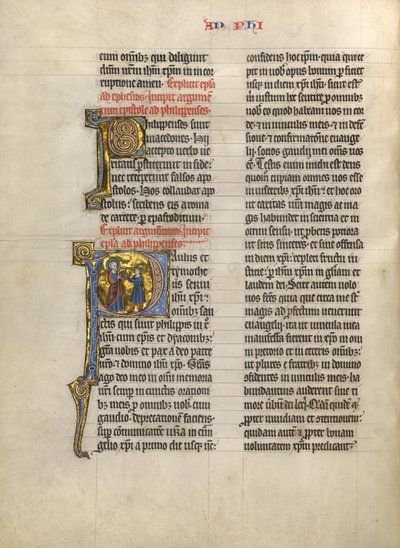 AD PHI
cum omnibus qui diligunt
dnm nrm ihm xpm in incor
ruptione amen. Explicit epla
ad ephesios. Incipit argumē
tum epistole ad philippenses.
Philippenses sunt
macedones. Hii
accepto verbo ve
ritatis perstiterunt in fide.
nec receperunt falsos apo
stolos. Hos collaudat apo
stolus. scribens eis a roma
de carcere. per epafroditum.
Explicit argumentum. Incipit
epla ad philippenses.
Paulus et
tymothe
us servi
ihu xpi.
omnibus san
ctis qui sunt philippis in x
ihu cum epis et dyaconibus.
Gra vobis et pax a deo patre
nro. & domino ihu xpo. Gras
ago deo meo in omni memoria
vri semp in cunctis orationi
bus meis p omnibus vob. cum
gaudio. deprecationē faciens.
sup cōmunicatōe vra in euan
gelio xpi. a prima die usq nc
confidens hoc ipm. quia qui ce
pit in vob opus bonum pficiet
usq in diem xpi ihu. sicut est
m iustum hec sentire p omnibus
vob. eo quod habeam vos in cor
de. & in vinculis meis. & in defē
sione. & confirmatione euange
lii. socios gaudii mei omnes vos
eē. Testis enim michi est deus
quom cupiam omnes vos esse
in visceribus xpi ihu. Et hoc oro
ut caritas vra magis ac ma
gis habundet in scientia et in
omni sensu. ut pbetis potiora
ut sitis sinceres. et sine offensa
in diem xpi. repleti fructu iu
sticie. p ihm xpm in gliam et
laudem dei. Scire autem volo
vos fratres quia que circa me st
magis ad pfectum venerunt
euuangelii. ita ut vincula mea
manifesta fierent in xpo. in om
ni pretorio et in ceteris omnibus.
ut plures e fratribus in domino
cōfidentes in vinculis meis. ha
bundantius auderent sine ti
more verbum dei loq. Quidā quidē
propter invidiam et contentionem.
quidam autē & propter bonam
voluntatem xpm predicant.